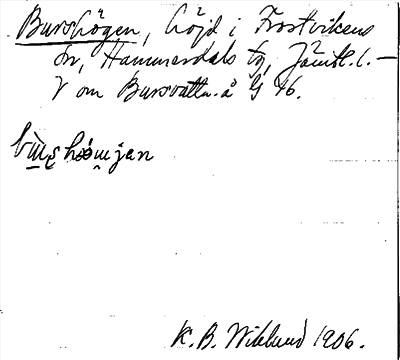 Burshögen, höjd i Frostvikens
sn, Hammerdals tg, Jämtl. l. —
V om Bursvattn. å G 46.
K. B. Wiklund 1906.